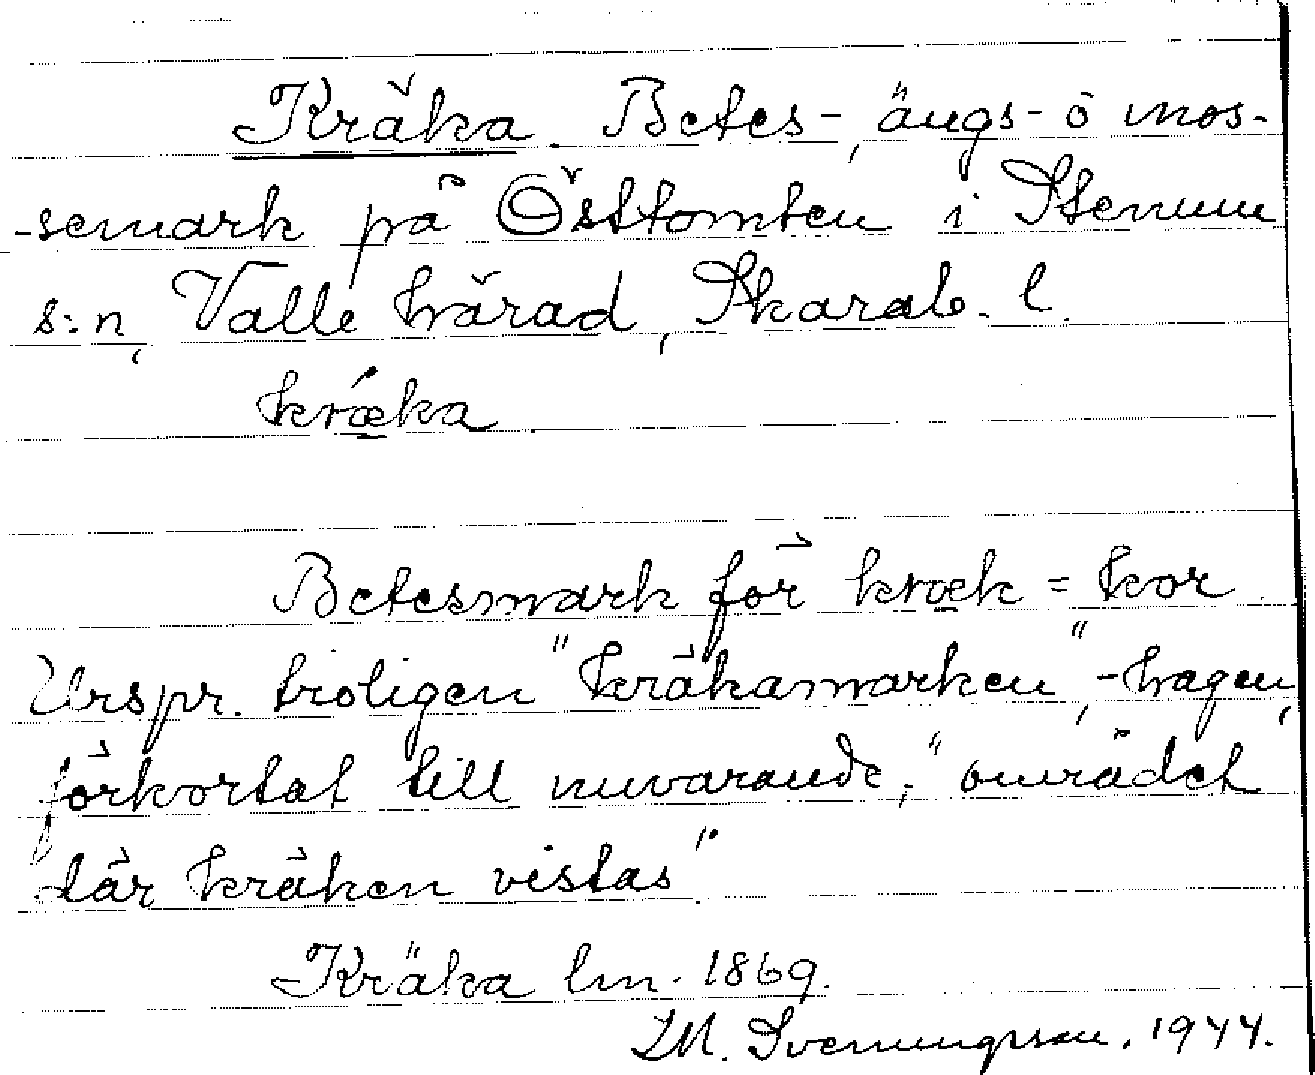 Kräka. Betes-, ängs- o mos-
-semark på Östtomten i Stenum
s:n, Valle härad, Skarab. l.
kræka
Betesmark för kræk = kor.
Urspr. troligen "kräkamarken", -hagen,
förkortat till nuvarande; "området
där kräken vistas"
Kräka lm. 1869.
LM. Svenungsson. 1944.